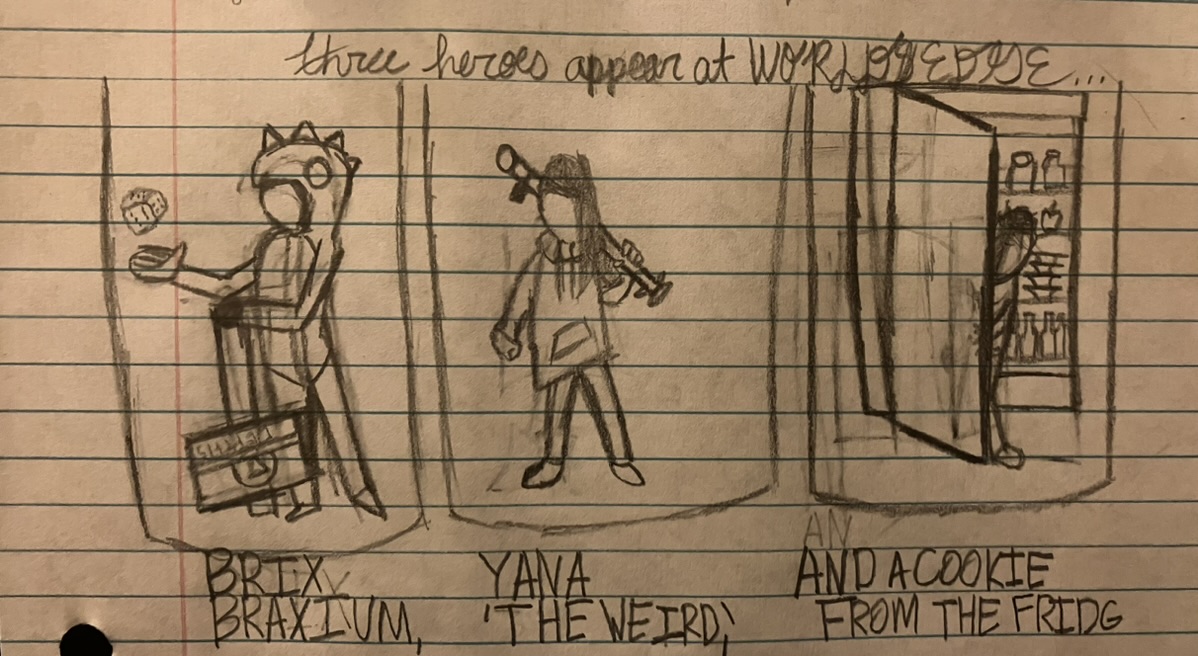 three heroes appear at WORLDSEDGE...
BRIX
BRAXIUM,
YANA
'THE WEIRD,'
AN
AND A COOKIE
FROM THE FRIDG